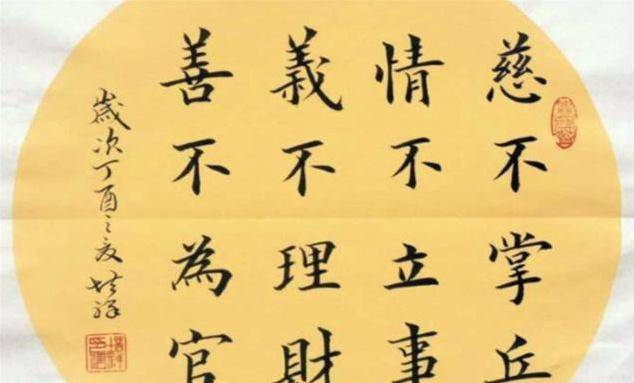 慈不掌兵
情不立事
義不理財
善不為官
歲次丁酉之夏培祥